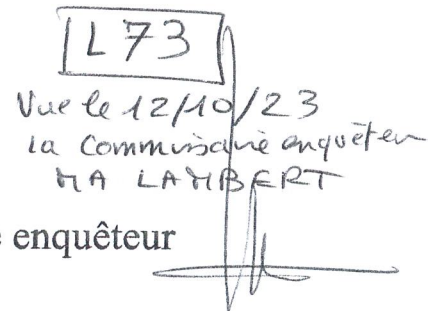 L73
Vue le 12/10/23
la Commissaire enquêteur
MA LAMBERT
e enquêteur